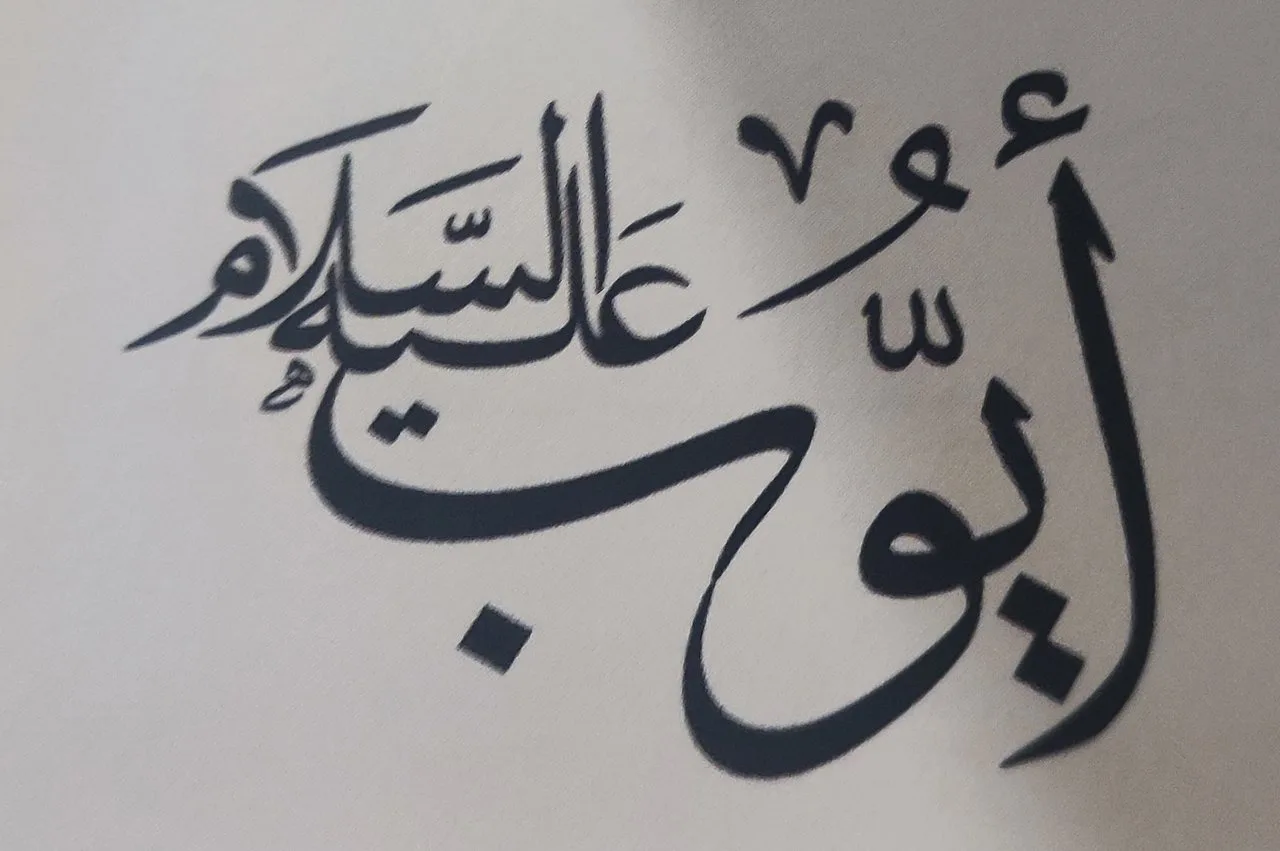 أيُّوب عليه السَّلام